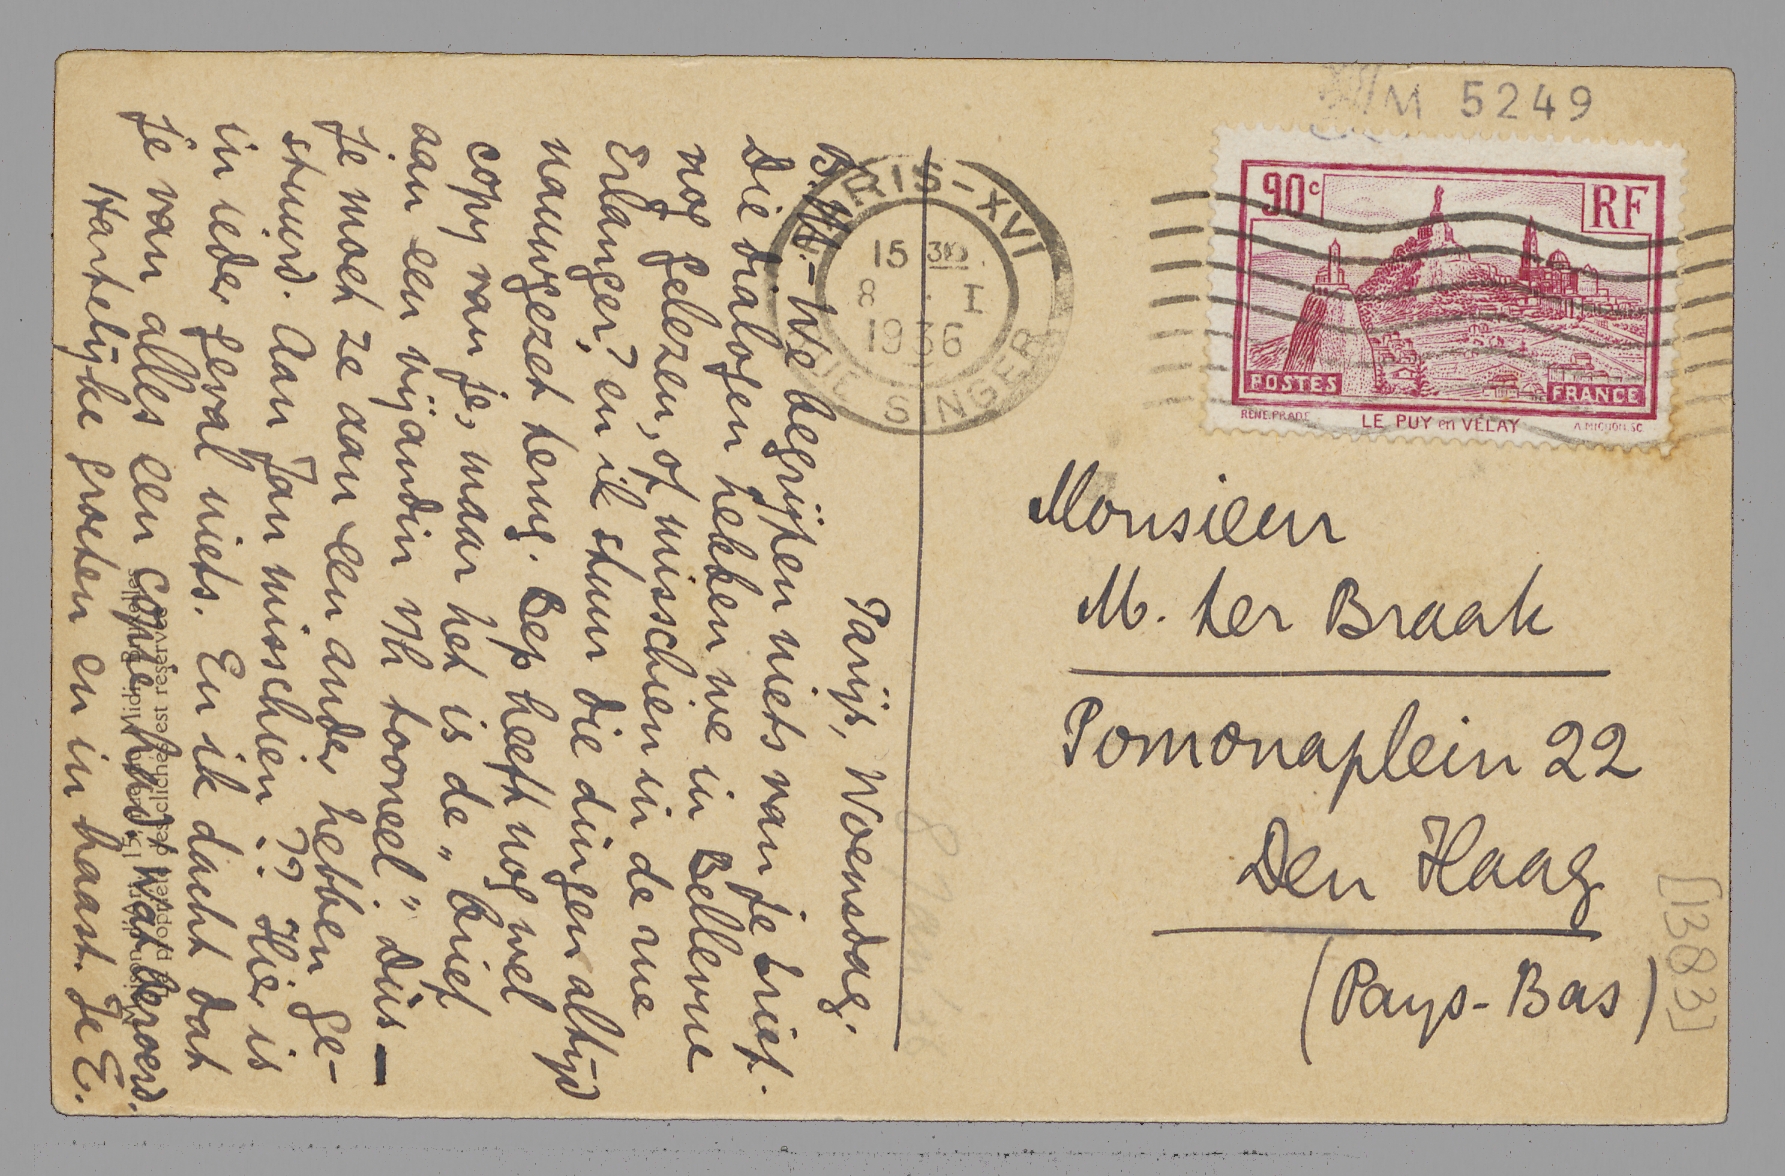 Parijs, Woensdag.
B.M. – We begrijpen niets van je brief.
Die dialogen hebben we in Bellevue
nog gelezen, of misschien in de rue
Erlanger? en ik stuur die dingen altijd
nauwgezet terug. Bep heeft nog wel
copy van je, maar het is de „brief
aan een vijandin v/h tooneel”. Dùs –
Je moet ze aan een ander hebben ge-
stuurd. Aan Jan misschien?? Hier is
in ieder geval niets. En ik dacht dat
je van alles een copie hield. Wat beroerd.
Hartelijke groeten en in haast. Je E.
PARIS-XVI
15 30
8 · I
1936
SINGER
M 5249
90c
RF
POSTES
FRANCE
RENE.PRADE
LE PUY en VELAY
A MIGNON SC
Monsieur
M. ter Braak
Pomonaplein 22
Den Haag
(Pays-Bas)
[1383]
8 jan '36